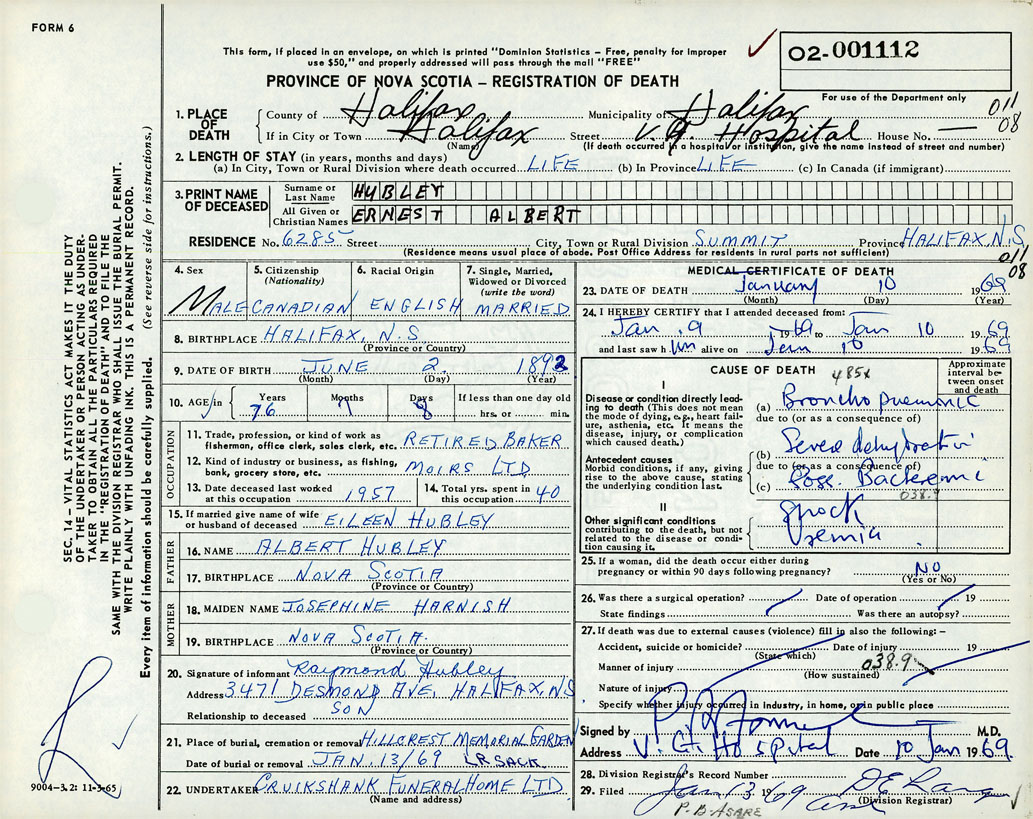 FORM 6
This form, if placed in an envelope, on which is printed "Dominion Statistics – Free, penalty for improper
use $50," and properly addressed will pass through the mail "FREE"
O2-001112
PROVINCE OF NOVA SCOTIA – REGISTRATION OF DEATH
For use of the Department only
011
08
1. PLACE OF DEATH
County of Halifax Municipality of Halifax
If in City or Town Halifax Street V.G. Hospital House No. —
(Name) (If death occurred in a hospital or institution, give the name instead of street and number)
2. LENGTH OF STAY (in years, months and days)
(a) In City, Town or Rural Division where death occurred LIFE (b) In Province LIFE (c) In Canada (if immigrant)
3. PRINT NAME OF DECEASED
Surname or Last Name HUBLEY
All Given or Christian Names ERNEST ALBERT
RESIDENCE No. 6285 Street City, Town or Rural Division SUMMIT Province HALIFAX, N.S
(Residence means usual place of abode. Post Office Address for residents in rural parts not sufficient)
011
08
4. Sex MALE
5. Citizenship (Nationality) CANADIAN
6. Racial Origin ENGLISH
7. Single, Married, Widowed or Divorced (write the word) MARRIED
8. BIRTHPLACE HALIFAX, N.S
(Province or Country)
9. DATE OF BIRTH JUNE 2. 1892
(Month) (Day) (Year)
10. AGE in Years 76 Months 7 Days 8 If less than one day old
hrs. or min.
OCCUPATION
11. Trade, profession, or kind of work as fisherman, office clerk, sales clerk, etc. RETIRED BAKER
12. Kind of industry or business, as fishing, bank, grocery store, etc. MOIRS LTD
13. Date deceased last worked at this occupation 1957
14. Total yrs. spent in this occupation 40
15. If married give name of wife or husband of deceased EILEEN HUBLEY
FATHER
16. NAME ALBERT HUBLEY
17. BIRTHPLACE NOVA SCOTIA
(Province or Country)
MOTHER
18. MAIDEN NAME JOSEPHINE HARNISH
19. BIRTHPLACE NOVA SCOTIA.
(Province or Country)
20. Signature of informant Raymond Hubley
Address 3471 DESMOND AVE, HALIFAX, NS
Relationship to deceased SON
21. Place of burial, cremation or removal HILLCREST MEMORIAL GARDEN
Date of burial or removal JAN. 13/69 LR. SACK.
22. UNDERTAKER CRUIKSHANK FUNERAL HOME LTD
(Name and address)
MEDICAL CERTIFICATE OF DEATH
23. DATE OF DEATH January 10 1969
(Month) (Day) (Year)
24. I HEREBY CERTIFY that I attended deceased from:
Jan. 9 1969 to Jan 10 1969
and last saw him alive on Jan 10 1969
CAUSE OF DEATH 485x
Approximate interval between onset and death
I
Disease or condition directly leading to death (This does not mean the mode of dying, e.g., heart failure, asthenia, etc. It means the disease, injury, or complication which caused death.)
(a) Bronchopneumonic
due to (or as a consequence of)
Antecedent causes
Morbid conditions, if any, giving rise to the above cause, stating the underlying condition last.
(b) Severe dehydration
due to (or as a consequence of)
(c) Poss. Bacteremic
038.9
II
Other significant conditions
contributing to the death, but not related to the disease or condition causing it.
Shock
Uremia
25. If a woman, did the death occur either during
pregnancy or within 90 days following pregnancy? NO
(Yes or No)
26. Was there a surgical operation? Date of operation 19
State findings Was there an autopsy?
27. If death was due to external causes (violence) fill in also the following: –
Accident, suicide or homicide? Date of injury 19
(State which)
Manner of injury 038.9
(How sustained)
Nature of injury
Specify whether injury occurred in industry, in home, or in public place
Signed by M.D.
Address V.G. Hospital Date 10 Jan 1969.
28. Division Registrar's Record Number
29. Filed Jan 13 1969
(Division Registrar)
P.B. ASARE
SEC. 14 – VITAL STATISTICS ACT MAKES IT THE DUTY
OF THE UNDERTAKER OR PERSON ACTING AS UNDER-
TAKER TO OBTAIN ALL THE PARTICULARS REQUIRED
IN THE "REGISTRATION OF DEATH" AND TO FILE THE
SAME WITH THE DIVISION REGISTRAR WHO SHALL ISSUE THE BURIAL PERMIT.
WRITE PLAINLY WITH UNFADING INK. THIS IS A PERMANENT RECORD.
Every item of information should be carefully supplied. (See reverse side for instructions.)
9004-3.2: 11-3-65